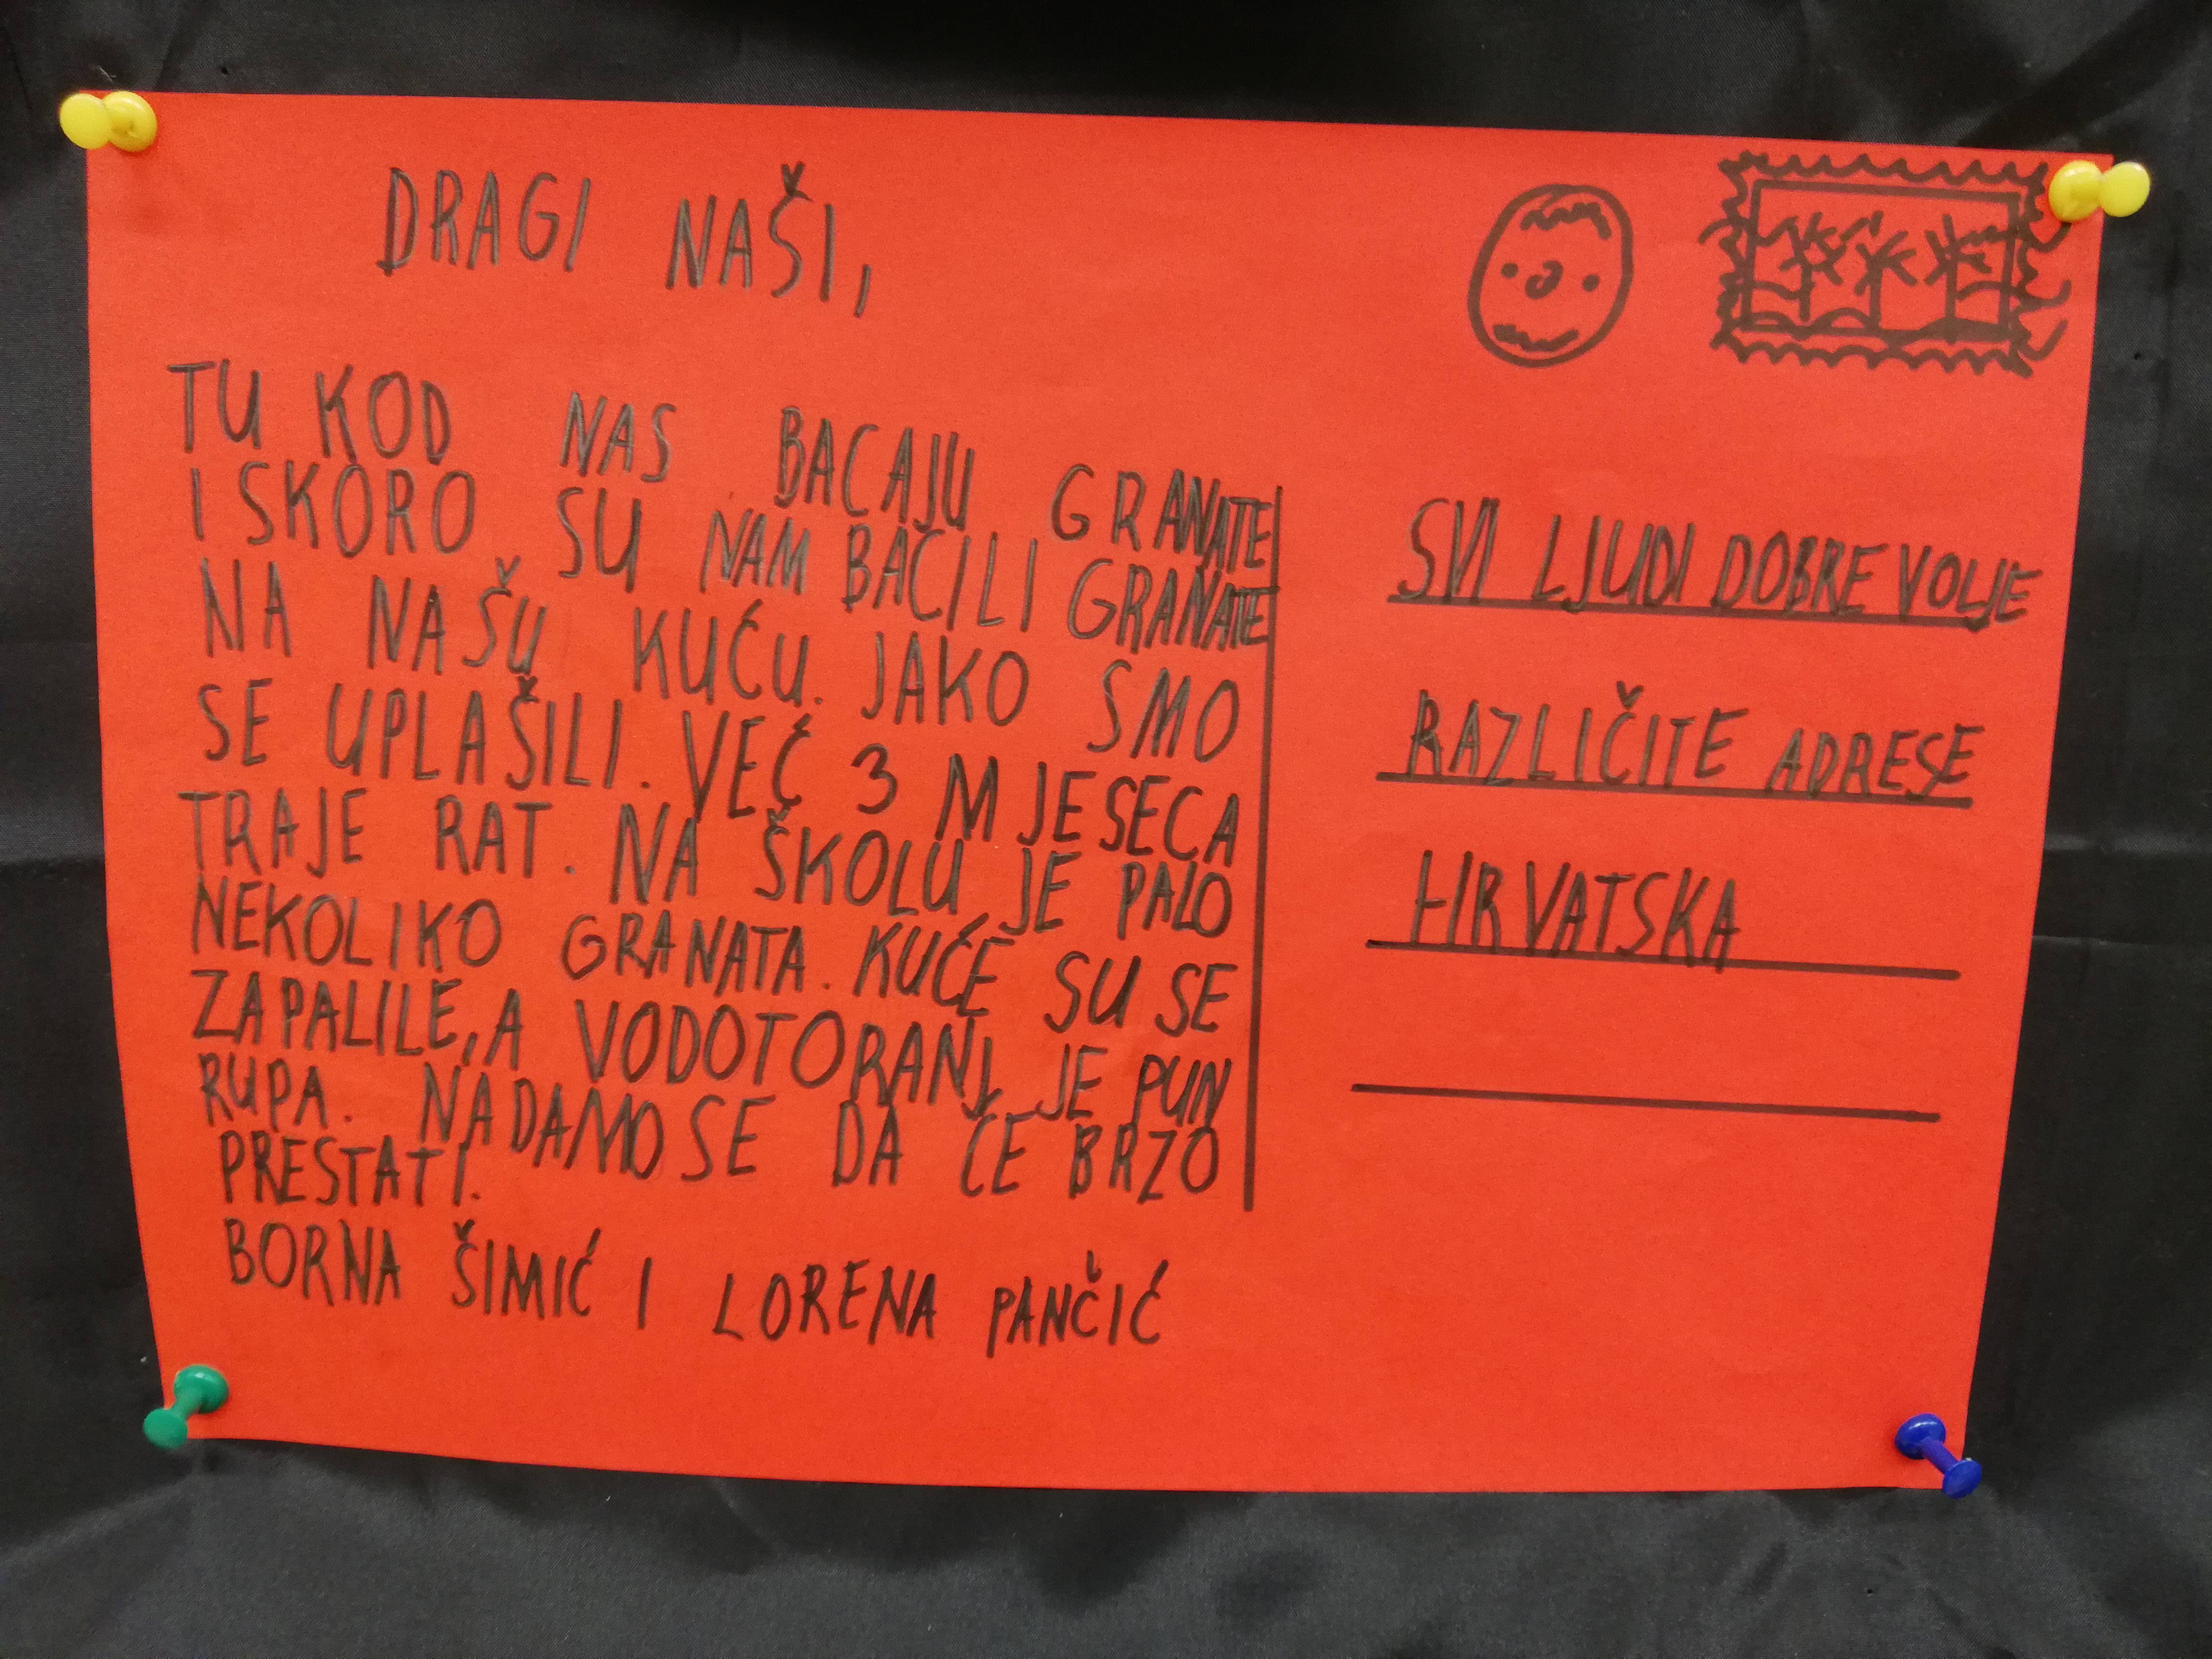 DRAGI NAŠI,
TU KOD NAS BACAJU GRANATE
I SKORO SU NAM BACILI GRANATE
NA NAŠU KUĆU. JAKO SMO
SE UPLAŠILI. VEĆ 3 MJESECA
TRAJE RAT. NA ŠKOLU JE PALO
NEKOLIKO GRANATA. KUĆE SU SE
ZAPALILE, A VODOTORANJ JE PUN
RUPA. NADAMO SE DA ĆE BRZO
PRESTATI.
BORNA ŠIMIĆ I LORENA PANČIĆ
SVI LJUDI DOBRE VOLJE
RAZLIČITE ADRESE
HRVATSKA